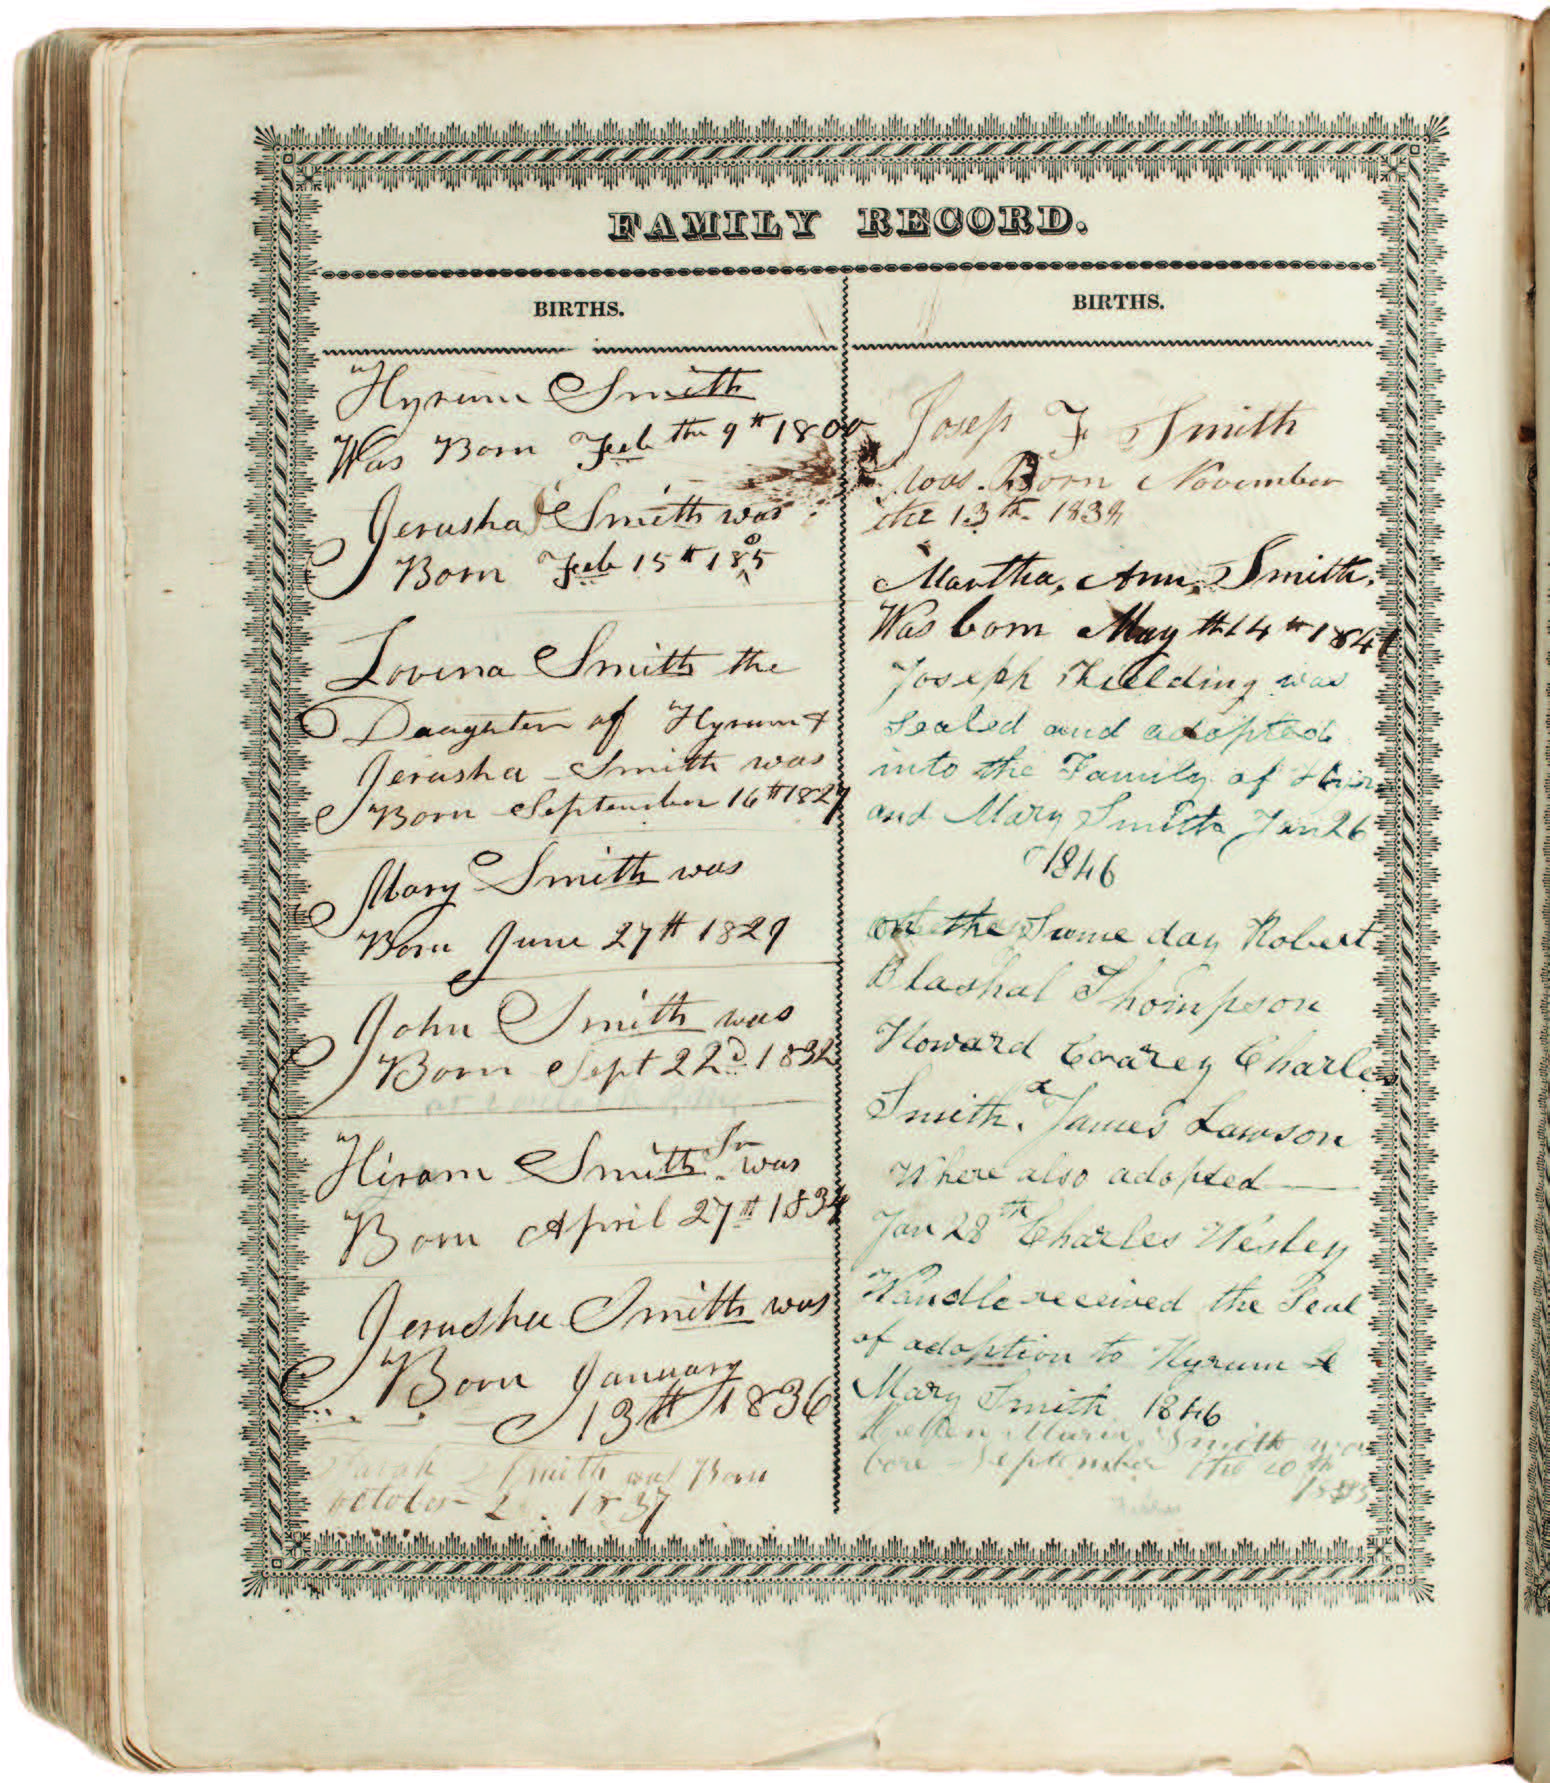 FAMILY RECORD.
BIRTHS.
Hyrum Smith
Was Born Feb the 9th 1800
Jerusha Smith was
Born Feb 15th 1805
Lovina Smith the
Daughter of Hyrum &
Jerusha Smith was
Born September 16th 1827
Mary Smith was
Born June 27th 1829
John Smith was
Born Sept 22d 1832
Hiram Smith Jr was
Born April 27th 1834
Jerusha Smith was
Born January
13th 1836
Sarah Smith was Born
october 2 1837
BIRTHS.
Joseph F Smith
was Born November
the 13th 1838
Martha, Ann, Smith,
Was born May th 14th 1841
Joseph Fielding was
Sealed and adopted
into the Family of
and Mary Smith Jan 26
1846
on the Same day Robert
Blashal Thompson
Howard Coarey Charles
Smith & James Lawson
Where also adopted
Jan 28th Charles Wesley
Wandle received the Seal
of adoption to Hyrum &
Mary Smith 1846
Maria Smith was
bore September the 10th